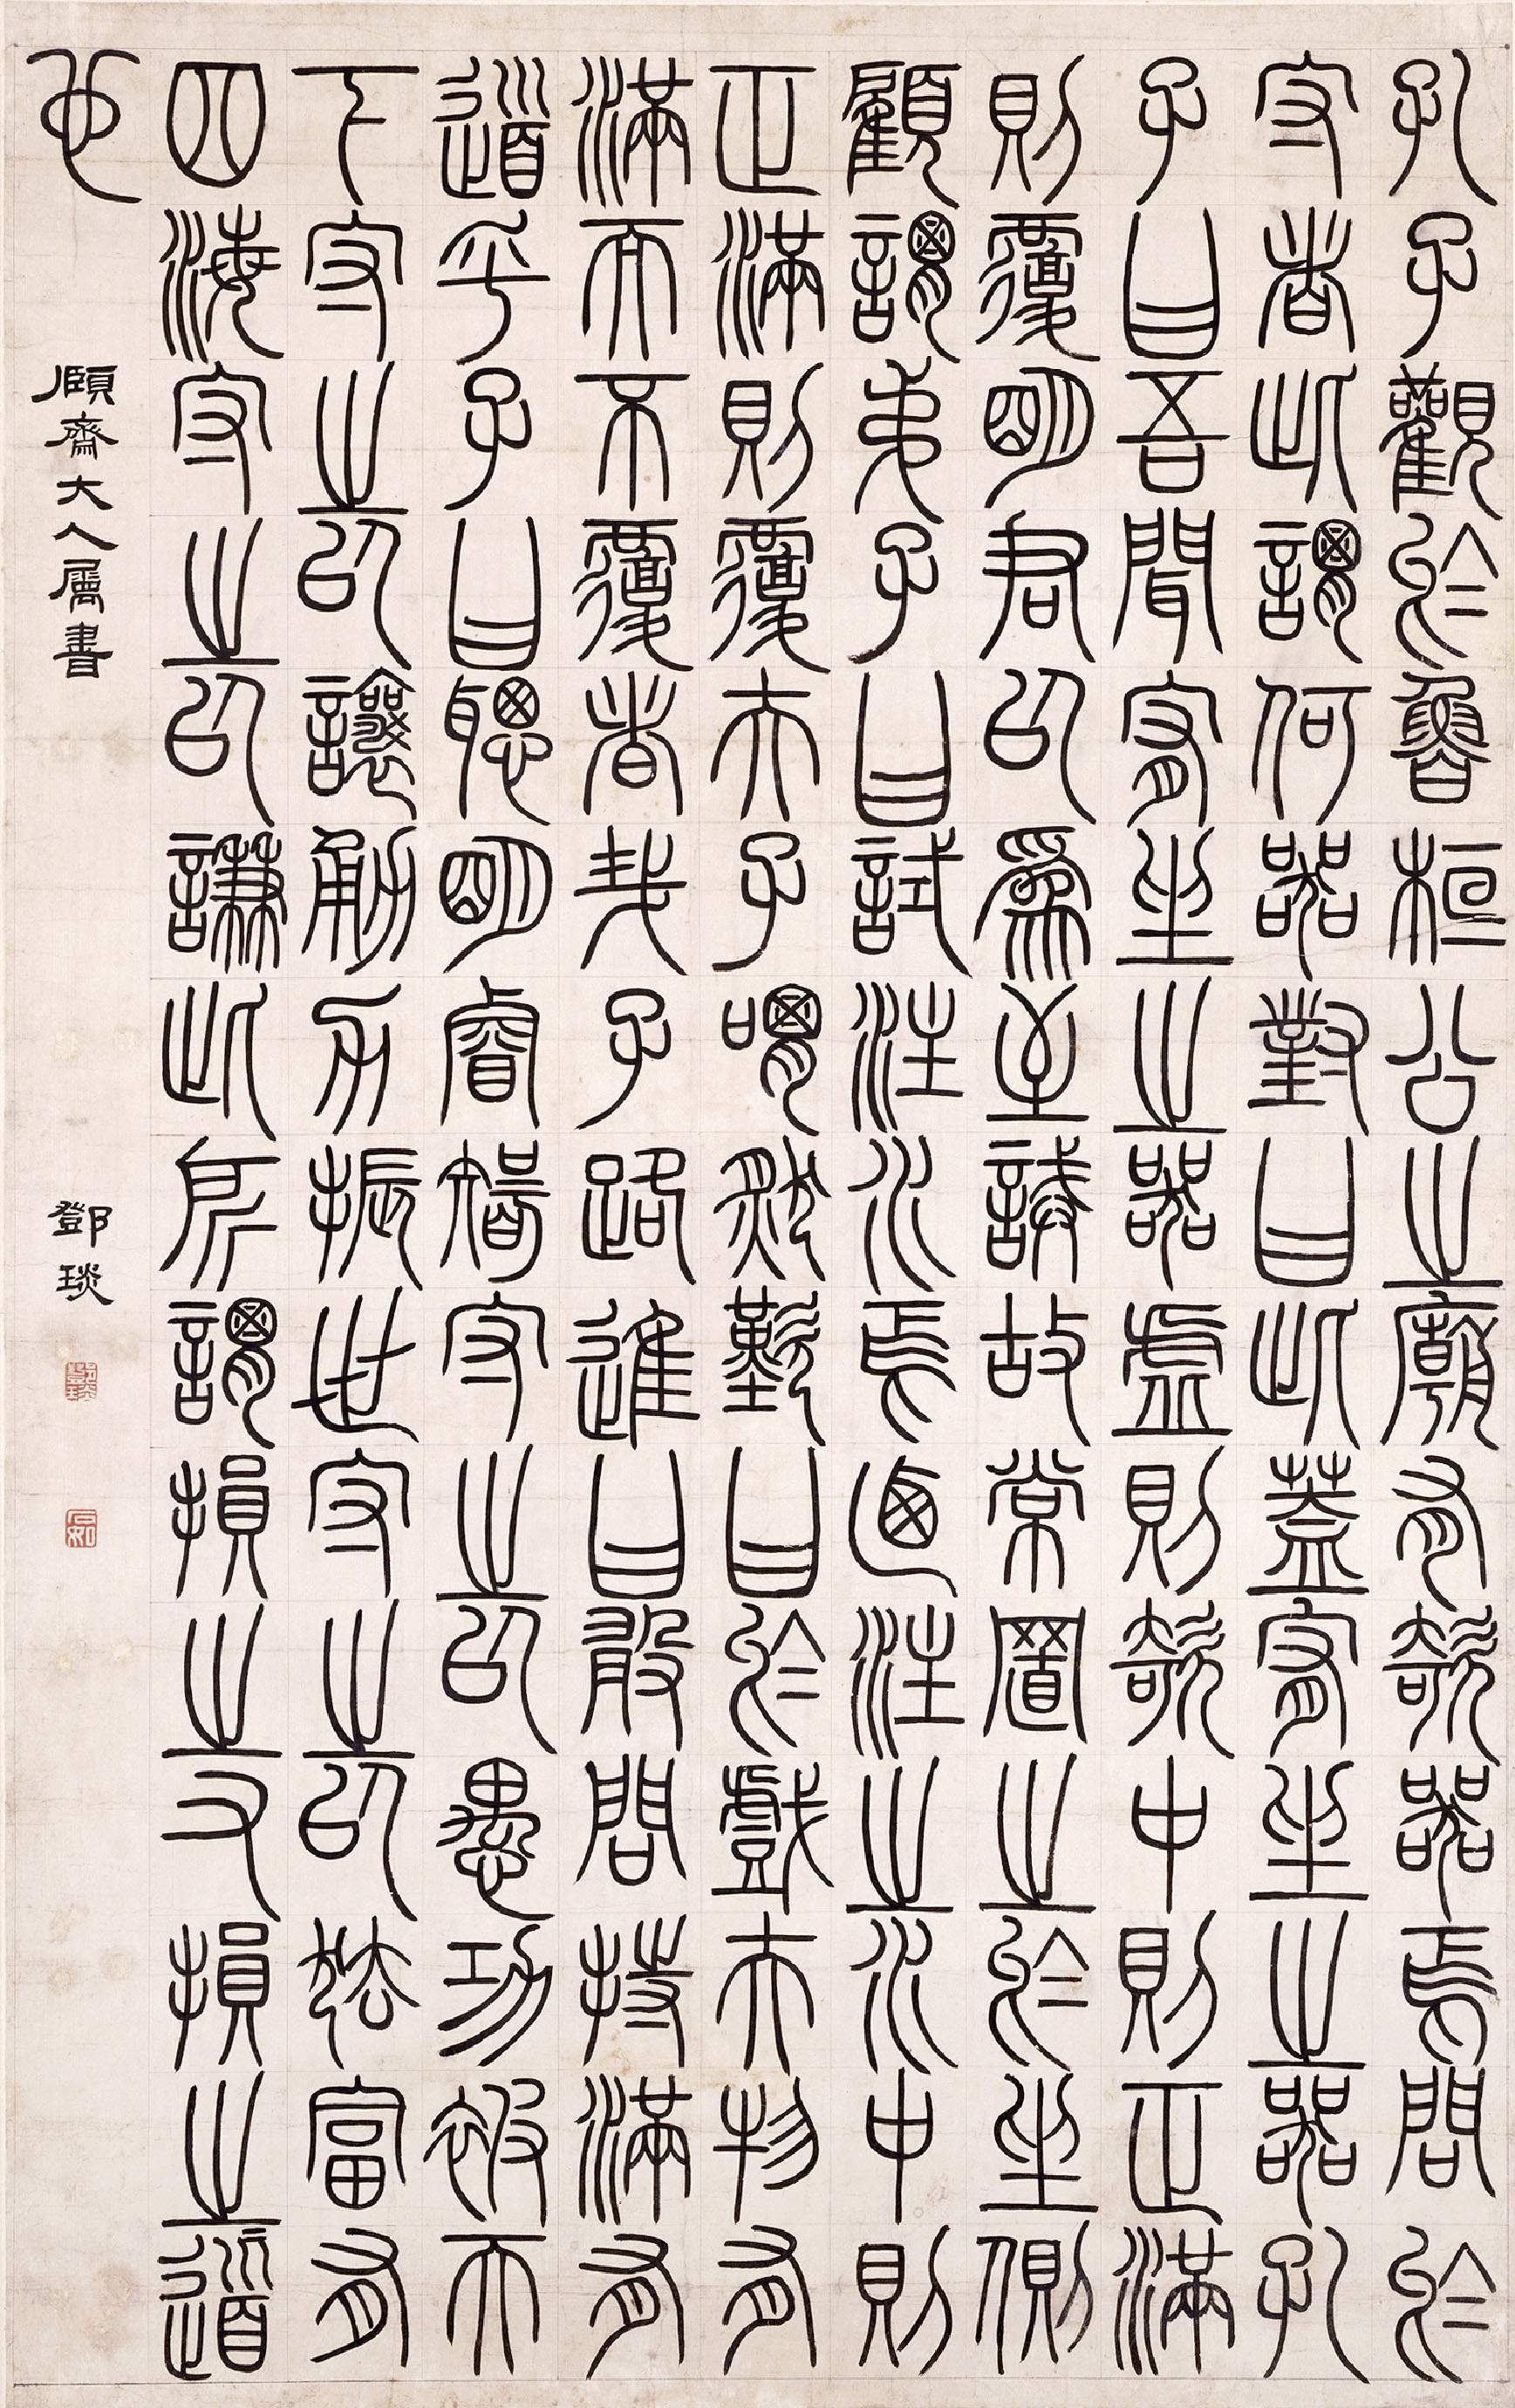 孔子觀於魯桓公之廟有欹器焉問於
守者此謂何器對曰此蓋宥坐之器孔
子曰吾聞宥坐之器虛則欹中則正滿
則覆明君以為至誡故常置之於坐側
顧謂弟子曰試注水焉迺注之水中則
正滿則覆夫子喟然歎曰於戲夫物有
滿而不覆者哉子路進曰敢問持滿有
道乎子曰聰明睿智守之以愚功被天
下守之以讓勇力振世守之以怯富有
四海守之以謙此所謂損之又損之道
也
頤齋大人屬書
鄧琰
鄧琰
石如